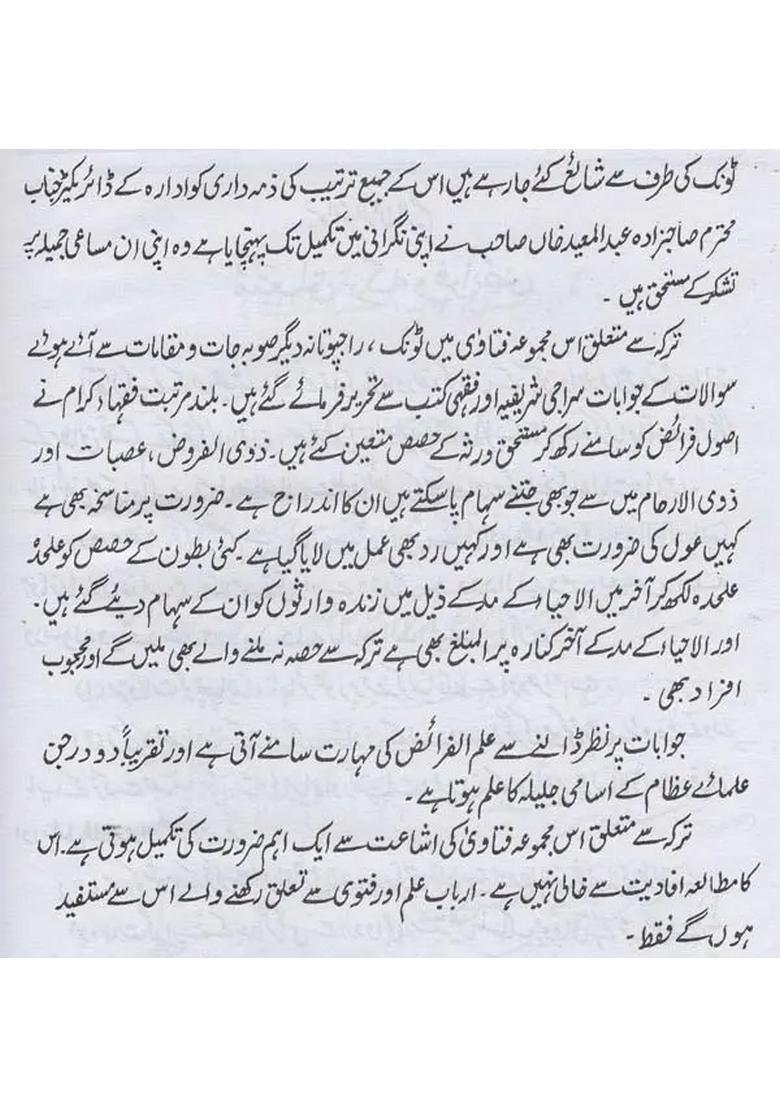 ٹونک کی طرف سے شائع کئے جارہے ہیں اس کے جمیع ترتیب کی ذمہ داری کو ادارہ کے ڈائریکٹر جناب
محترم صاحبزادہ عبدالمعید خاں صاحب نے اپنی نگرانی میں تکمیل تک پہنچایا ہے وہ اپنی ان مساعی جمیلہ پر
تشکر کے مستحق ہیں ۔
ترکہ سے متعلق اس مجموعہ فتاوٰی میں ٹونک ، راجپوتانہ دیگر صوبہ جات و مقامات سے آئے ہوئے
سوالات کے جوابات سراجی شریفیہ اور فقہی کتب سے تحریر فرمائے گئے ہیں۔ بلند مرتبت فقہاء کرام نے
اصول فرائض کو سامنے رکھ کر مستحق ورثہ کے حصص متعین کئے ہیں۔ ذوی الفروض ، عصبات اور
ذوی الارحام میں سے جو بھی جتنے سہام پا سکتے ہیں ان کا اندراج ہے۔ ضرورت پر مناسخہ بھی ہے
کہیں عول کی ضرورت بھی ہے اور کہیں رد بھی عمل میں لایا گیا ہے۔ کئی بطون کے حصص کو علحدہ
علحدہ لکھ کر آخر میں الاحیاء کے مد کے ذیل میں زندہ وارثوں کو ان کے سہام دیئے گئے ہیں۔
اور الاحیاء کے مد کے آخر کنارہ پر المبلغ بھی ہے ترکہ سے حصہ نہ ملنے والے بھی ملیں گے اور محجوب
افراد بھی ۔
جوابات پر نظر ڈالنے سے علم الفرائض کی مہارت سامنے آتی ہے اور تقریباً دو درجن
علمائے عظام کے اسامی جلیلہ کا علم ہوتا ہے ۔
ترکہ سے متعلق اس مجموعہ فتاویٰ کی اشاعت سے ایک اہم ضرورت کی تکمیل ہوتی ہے۔ اس
کا مطالعہ افادیت سے خالی نہیں ہے ۔ ارباب علم اور فتوی سے تعلق رکھنے والے اس سے مستفید
ہوں گے فقط ۔